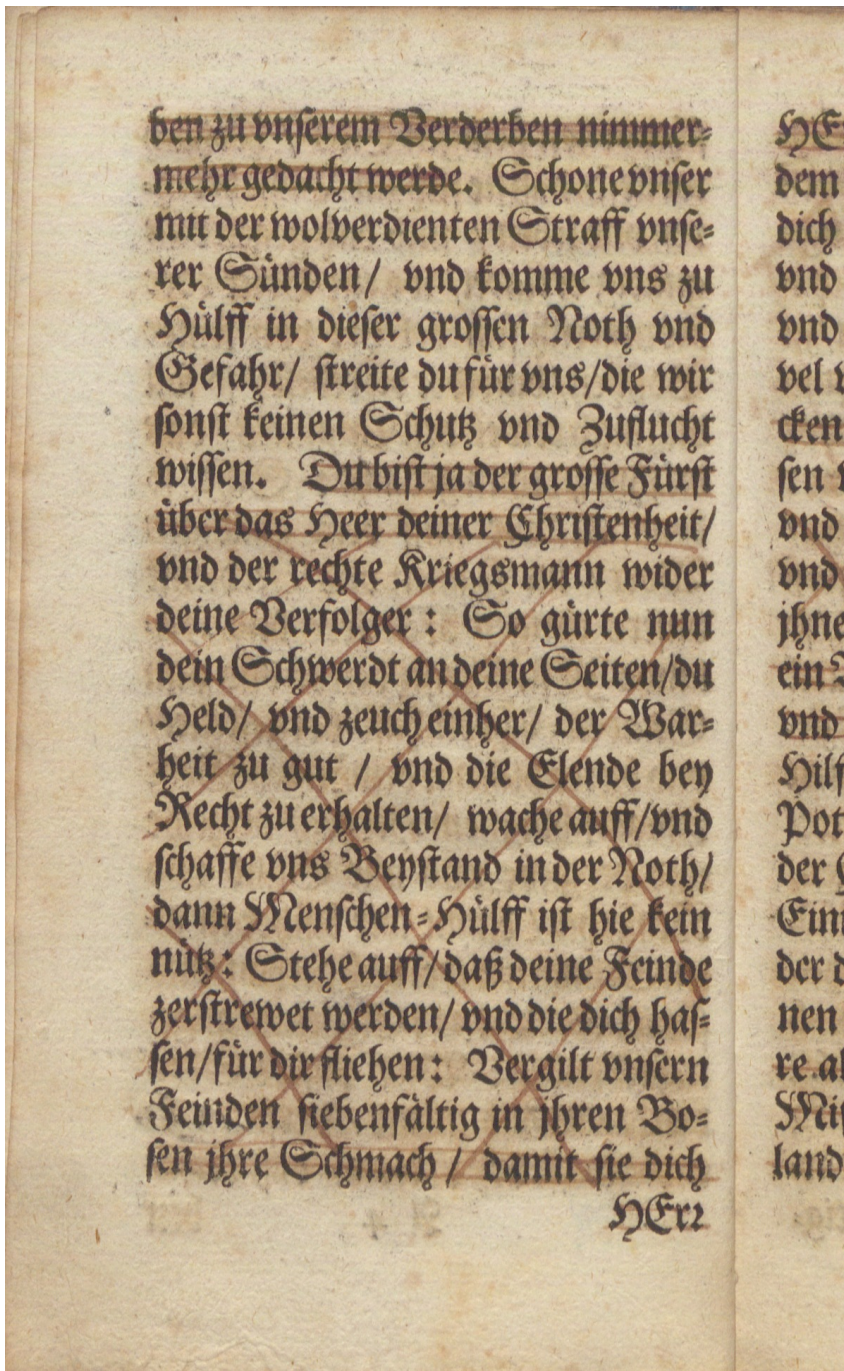 ben zu vnserem Verderben nimmer-
mehr gedacht werde. Schone vnser
mit der wolverdienten Straff vnse-
rer Sünden/ vnd komme vns zu
Hülff in dieser grossen Noth vnd
Gefahr/ streite du für vns/die wir
sonst keinen Schutz vnd Zuflucht
wissen. Du bist ja der grosse Fürst
über das Heer deiner Christenheit/
vnd der rechte Kriegsmann wider
deine Verfolger: So gürte nun
dein Schwerdt an deine Seiten/du
Held/ vnd zeuch einher/ der War-
heit zu gut / vnd die Elende bey
Recht zu erhalten/ wache auff/vnd
schaffe vns Beystand in der Noth/
dann Menschen-Hülff ist hie kein
nütz: Stehe auff/daß deine Feinde
zerstrewet werden/ vnd die dich has-
sen/für dir fliehen: Vergilt vnsern
Feinden siebenfältig in jhren Bo-
sen jhre Schmach/ damit sie dich
HErr
HE
dem
dich
vnd
vnd
vel
cken
sen
vnd
vnd
jhne
ein
vnd
Hilf
Pot
der
Eini
der d
nen
re al
Mis
land